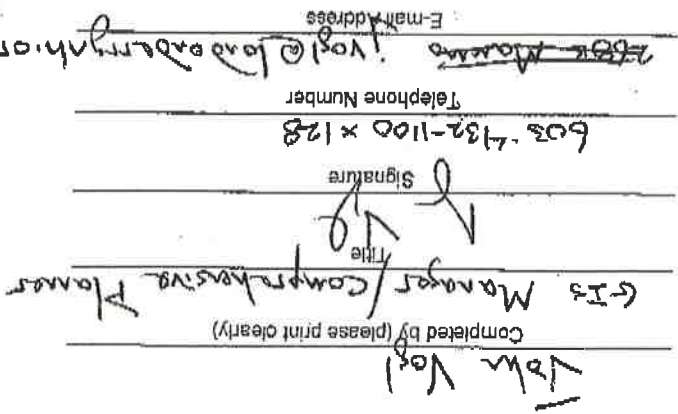 John Vogl
Completed by (please print clearly)
GIS Manager / Comprehensive Planner
Title
Signature
603-432-1100 x128
Telephone Number
jvogl@londonderrynh.or
E-mail Address